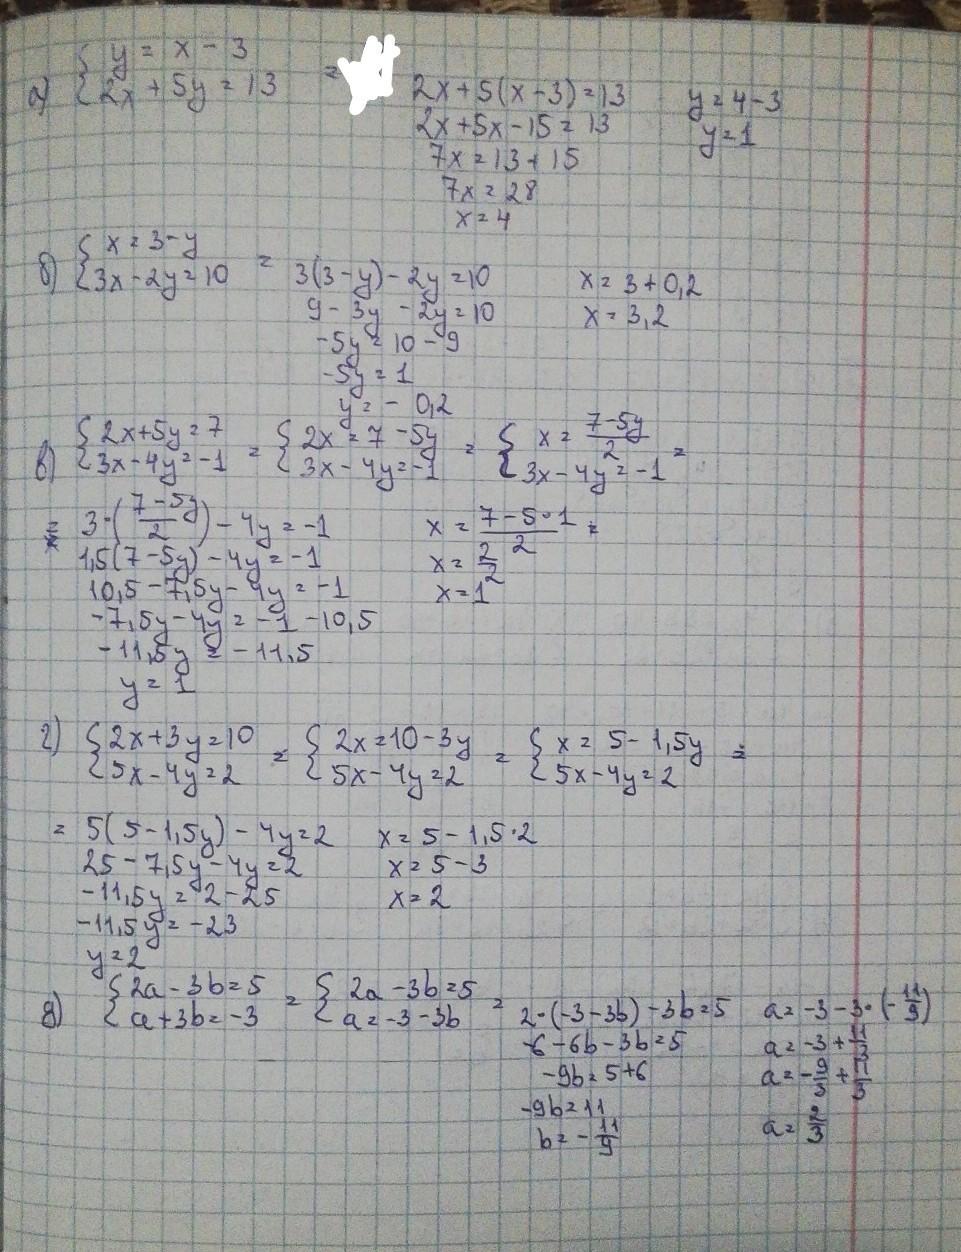 а) { y = x - 3
{ 2x + 5y = 13 =
2x + 5(x - 3) = 13
2x + 5x - 15 = 13
7x = 13 + 15
7x = 28
x = 4
y = 4 - 3
y = 1
б) { x = 3 - y
{ 3x - 2y = 10 =
3(3 - y) - 2y = 10
9 - 3y - 2y = 10
-5y = 10 - 9
-5y = 1
y = - 0,2
x = 3 + 0,2
x = 3,2
в) { 2x + 5y = 7 = { 2x = 7 - 5y = { x = (7 - 5y)/2
{ 3x - 4y = -1 { 3x - 4y = -1 { 3x - 4y = -1 =
= 3·((7 - 5y)/2) - 4y = -1
1,5(7 - 5y) - 4y = -1
10,5 - 7,5y - 4y = -1
-7,5y - 4y = -1 - 10,5
-11,5y = -11,5
y = 1
x = (7 - 5·1)/2 =
x = 2/2
x = 1
г) { 2x + 3y = 10 = { 2x = 10 - 3y = { x = 5 - 1,5y =
{ 5x - 4y = 2 { 5x - 4y = 2 { 5x - 4y = 2
= 5(5 - 1,5y) - 4y = 2
25 - 7,5y - 4y = 2
-11,5y = 2 - 25
-11,5y = -23
y = 2
x = 5 - 1,5·2
x = 5 - 3
x = 2
д) { 2a - 3b = 5 = { 2a - 3b = 5 =
{ a + 3b = -3 { a = -3 - 3b
2·(-3 - 3b) - 3b = 5
-6 - 6b - 3b = 5
-9b = 5 + 6
-9b = 11
b = - 11/9
a = -3 - 3·(-11/9)
a = -3 + 11/3
a = -9/3 + 11/3
a = 2/3